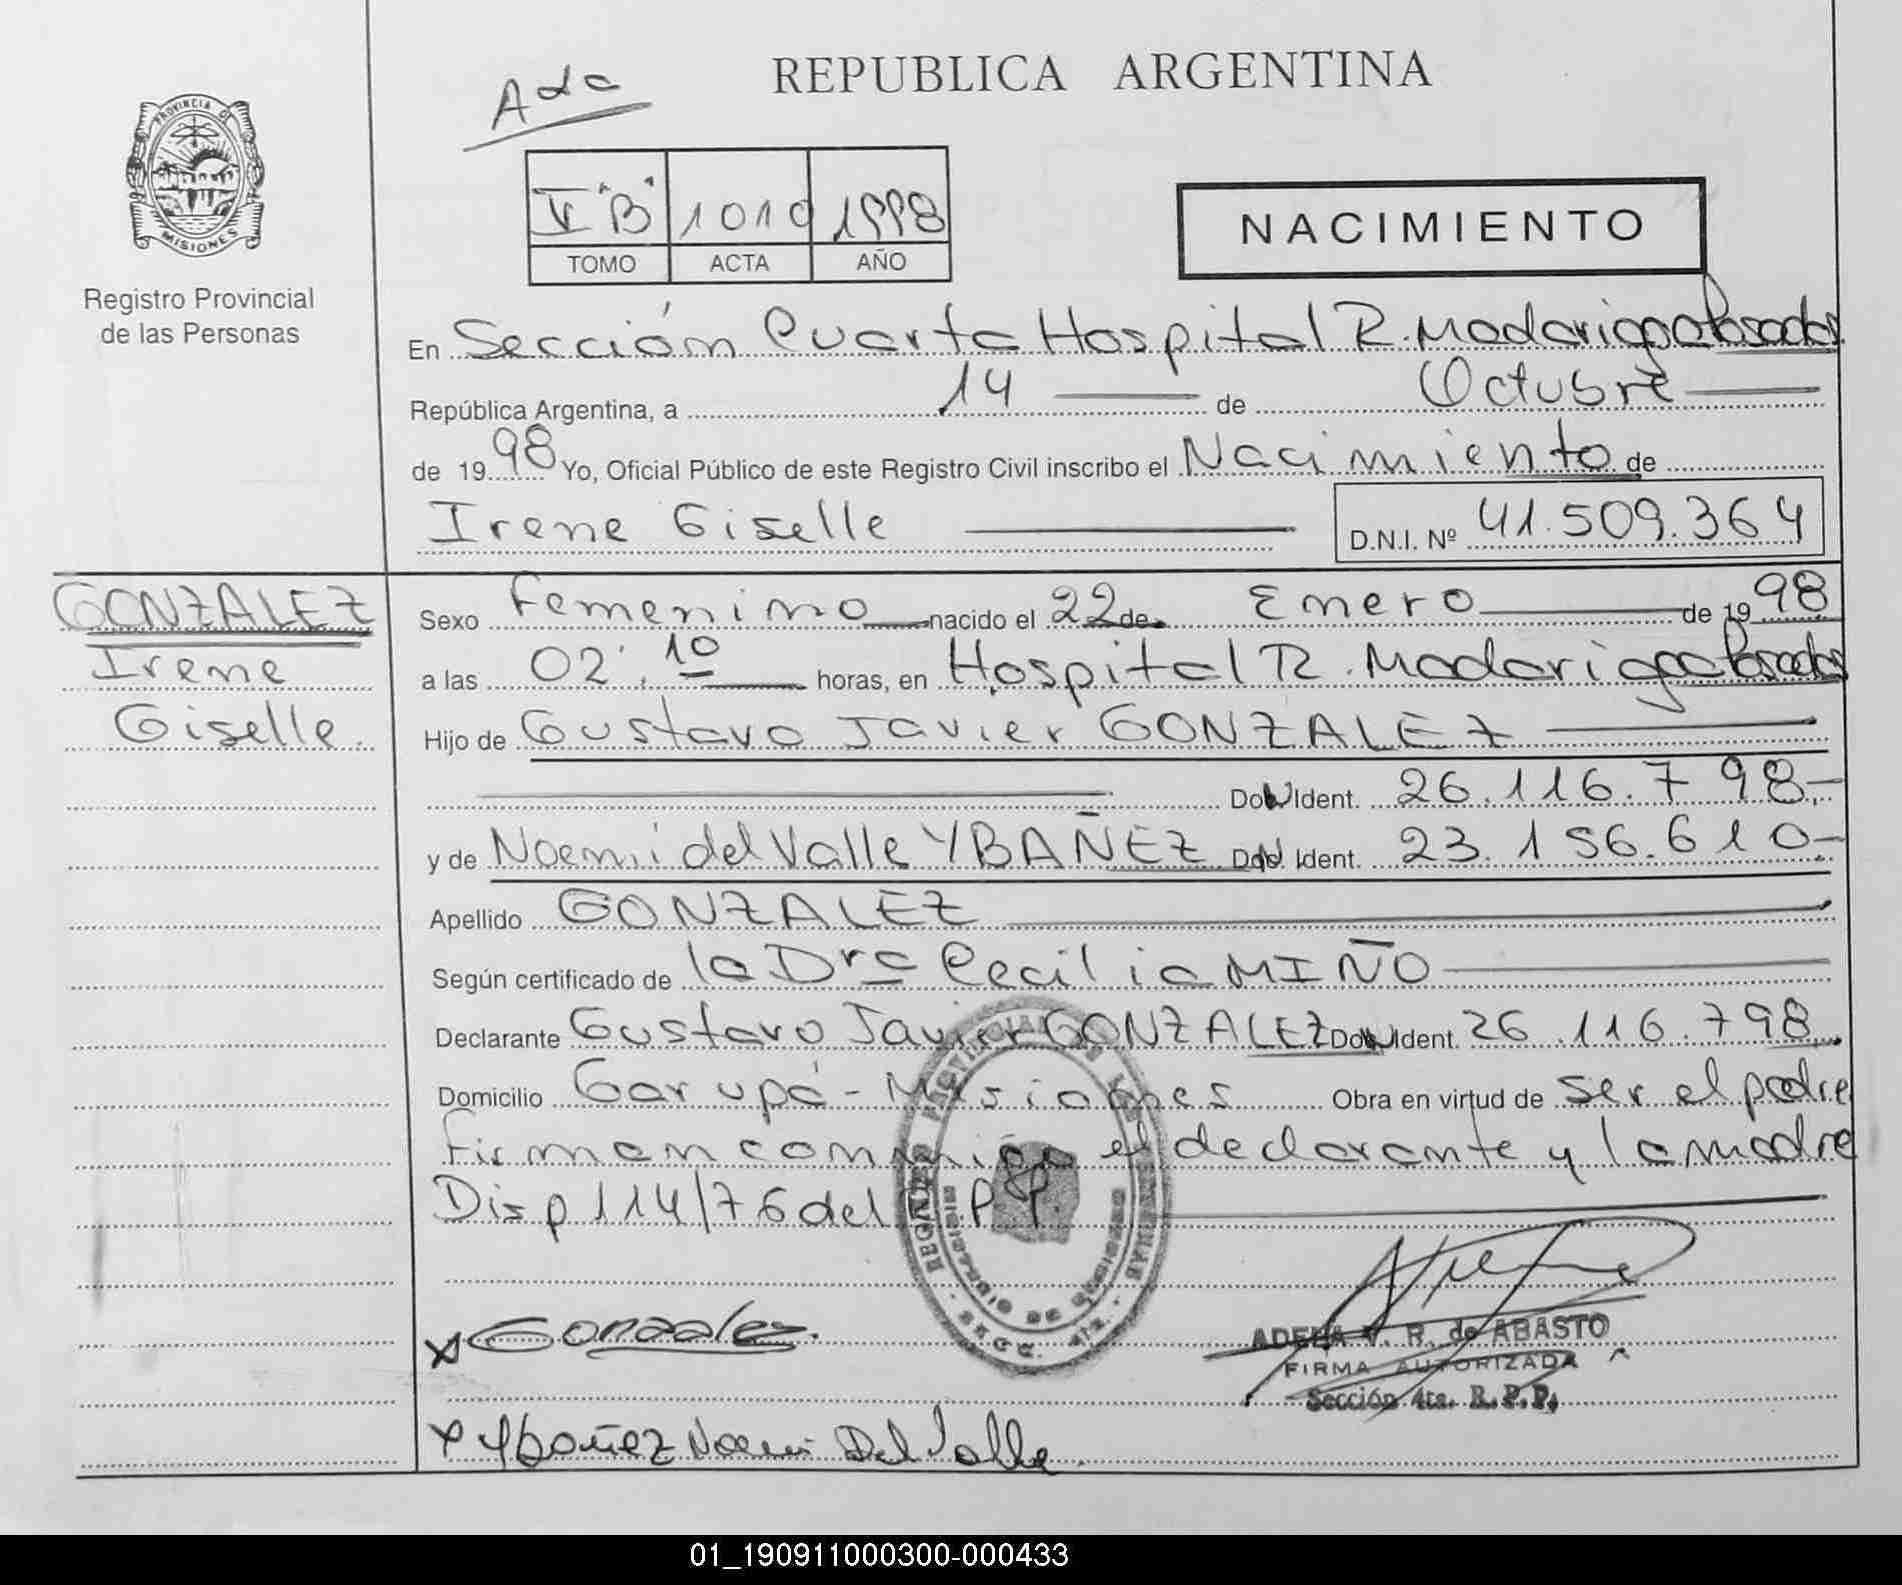 Ada
REPUBLICA ARGENTINA
PROVINCIA DE
MISIONES
Registro Provincial
de las Personas
V "B" 1010 1998
TOMO ACTA AÑO
NACIMIENTO
En Sección Cuarta Hospital R. Madariaga Posadas
República Argentina, a 14 de Octubre
de 1998 Yo, Oficial Público de este Registro Civil inscribo el Nacimiento de
Irene Giselle D.N.I. Nº 41.509.364
GONZALEZ
Irene
Giselle.
Sexo Femenino nacido el 22 de Enero de 1998
a las 02:10 horas, en Hospital R. Madariaga Posadas
Hijo de Gustavo Javier GONZALEZ
Ident. 26.116.798-
y de Noemi del Valle YBAÑEZ Ident. 23.156.610-
Apellido GONZALEZ
Según certificado de la Dra Cecilia MIÑO
Declarante Gustavo Javier GONZALEZ Ident. 26.116.798
Domicilio Garupá - Misiones Obra en virtud de ser el padre
Firman conmigo el declarante y la madre
Disp 114/76 del R.P.P.
x Gonzalez.
ADELA V. R. de ABASTO
FIRMA AUTORIZADA
Sección 4ta. R.P.P.
x Ybañez Noemi Del Valle
01_190911000300-000433